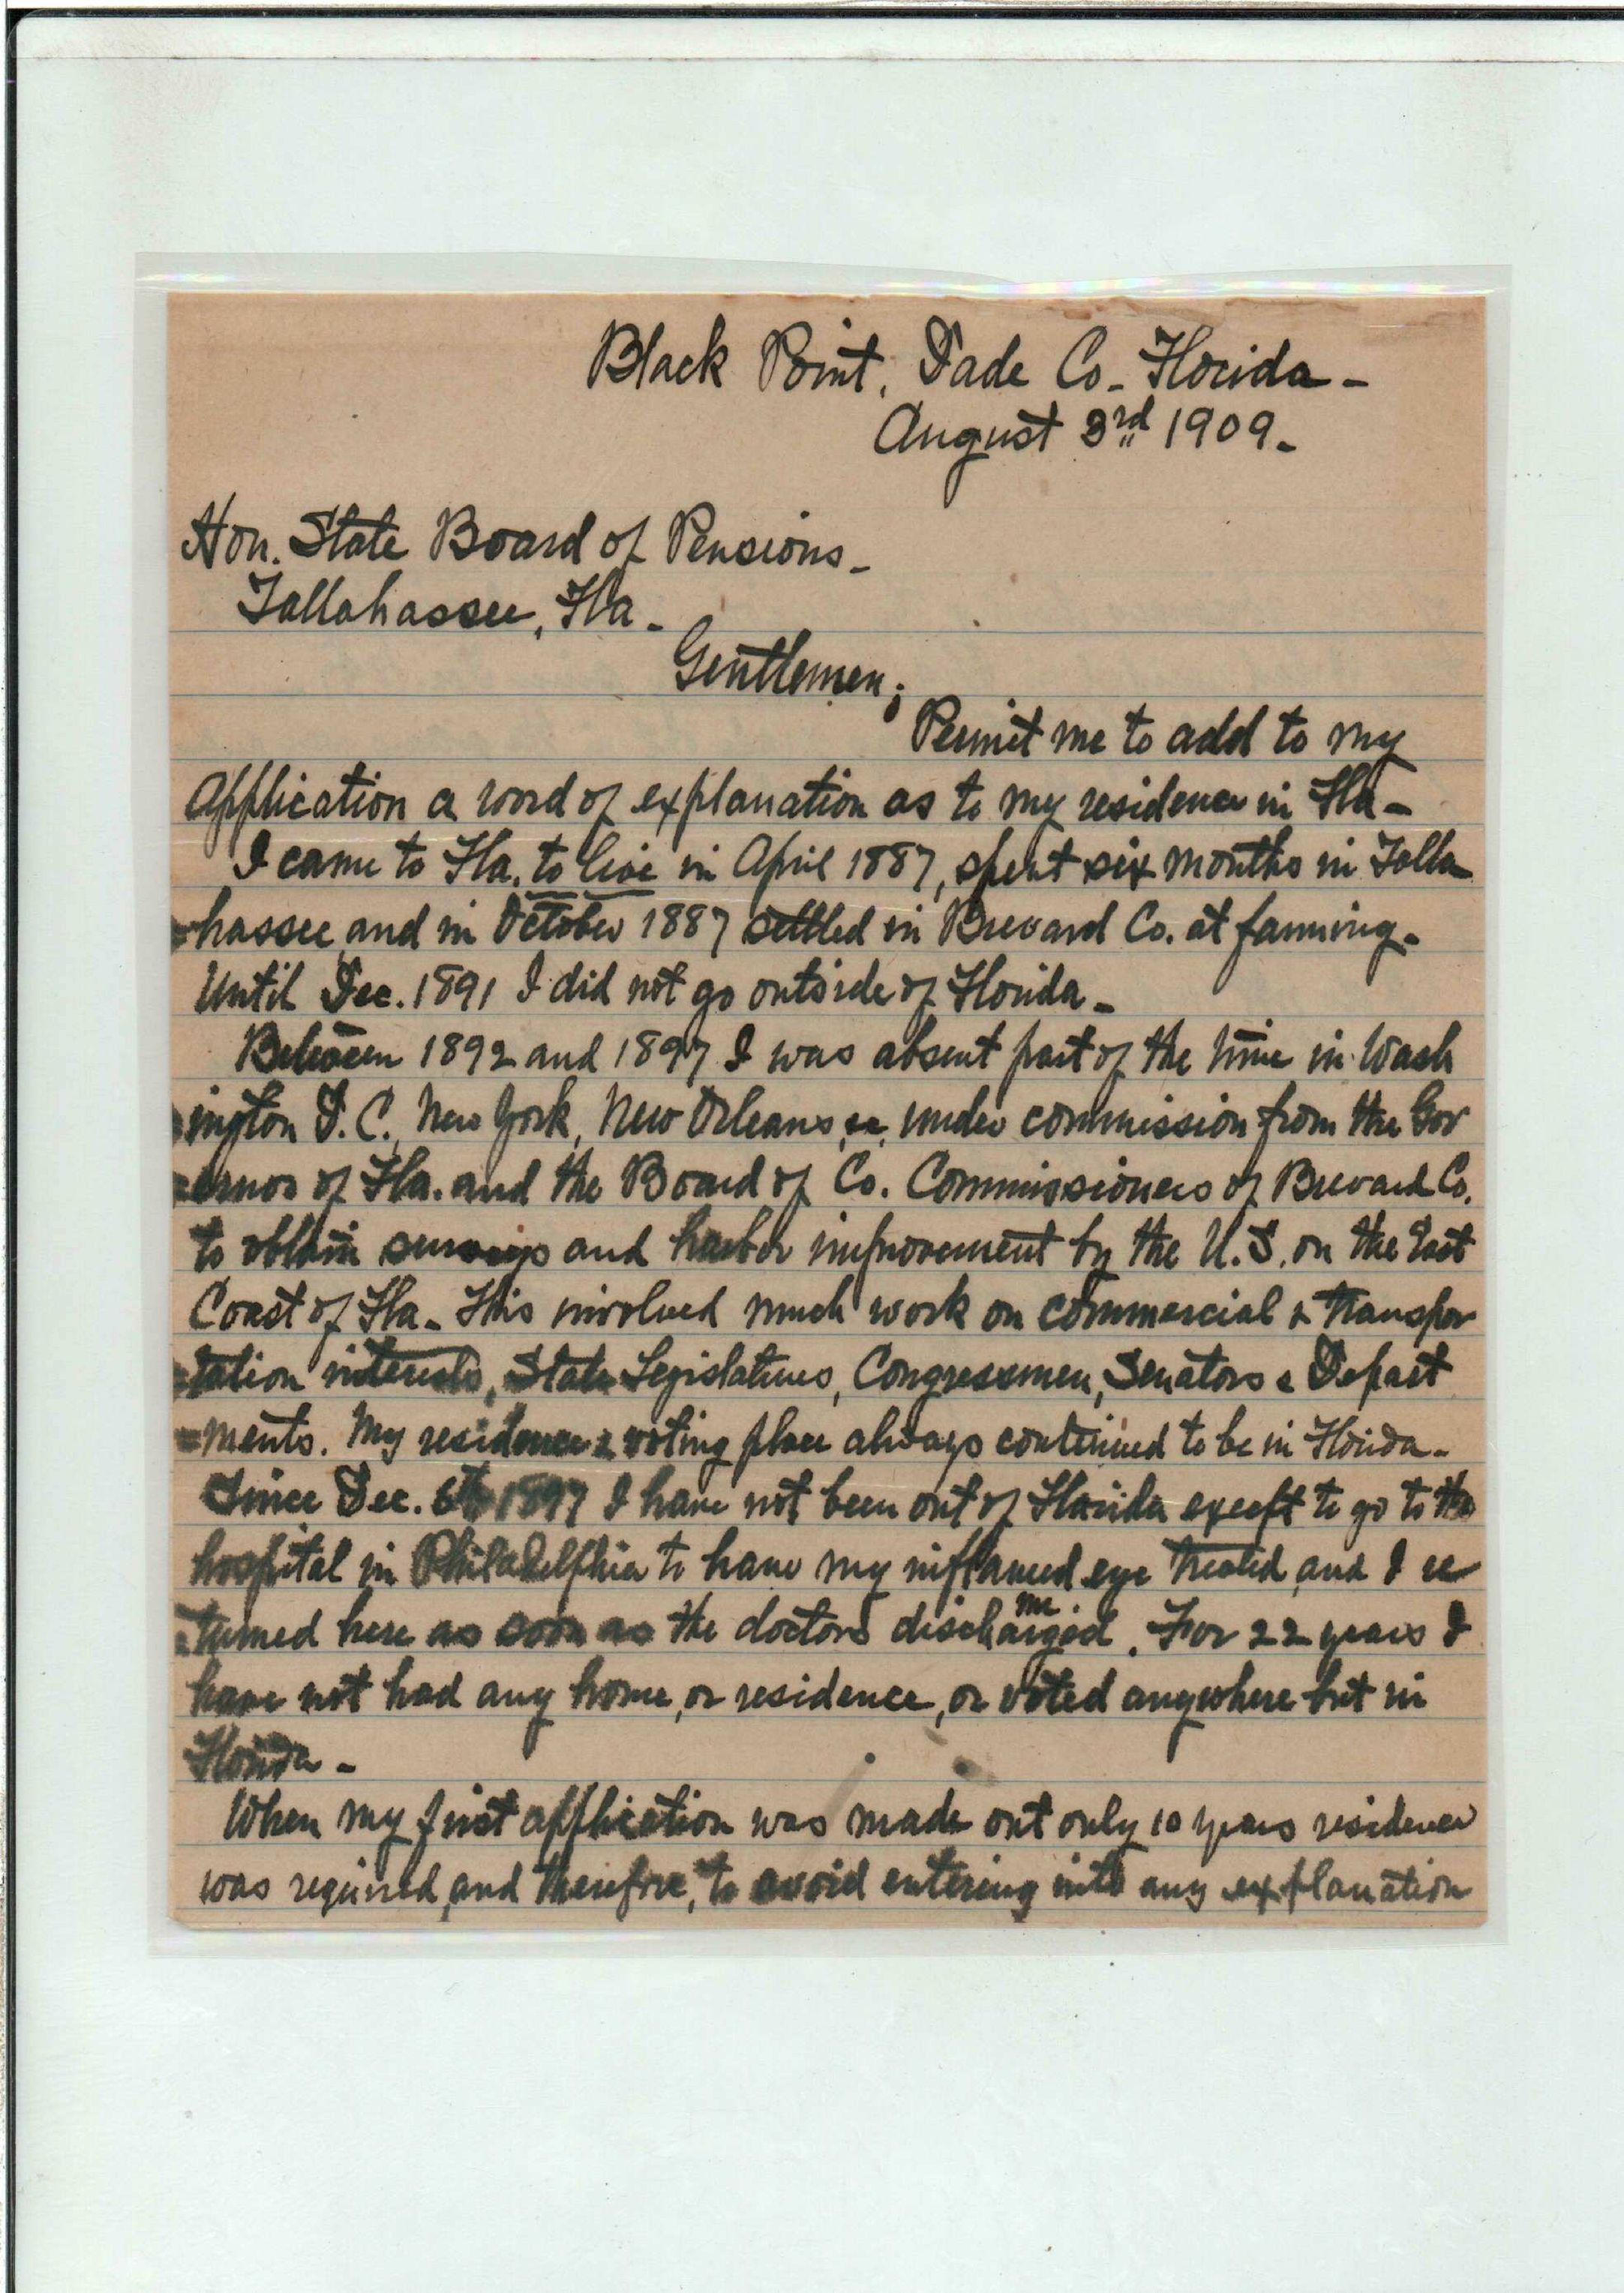 Black Point, Dade Co - Florida -
August 3rd 1909 -
Hon. State Board of Pensions -
Tallahassee, Fla -
Gentlemen;
Permit me to add to my
application a word of explanation as to my residence in Fla -
I came to Fla. to live in April 1887, spent six months in Talla
=hassee, and in October 1887 settled in Brevard Co. at farming -
Until Dec. 1891 I did not go outside of Florida -
Between 1892 and 1897 I was absent part of the time in Wash
=ington D.C., New York, New Orleans, &c, under commission from the Gov
=ernor of Fla. and the Board of Co. Commissioners of Brevard Co.
to obtain surveys and harbor improvement by the U.S. on the East
Coast of Fla - This involved much work on commercial & transpor
=tation interests, State Legislatures, Congressmen, Senators & Depart
=ments. My residence & voting place always continued to be in Florida -
Since Dec. 6th 1897 I have not been out of Florida except to go to the
hospital in Philadelphia to have my inflamed eye treated, and I re
=turned here as soon as the doctors discharged me. For 22 years I
have not had any home, or residence, or voted anywhere but in
Florida -
When my first application was made out only 10 years residence
was required, and therefore, to avoid entering into any explanation